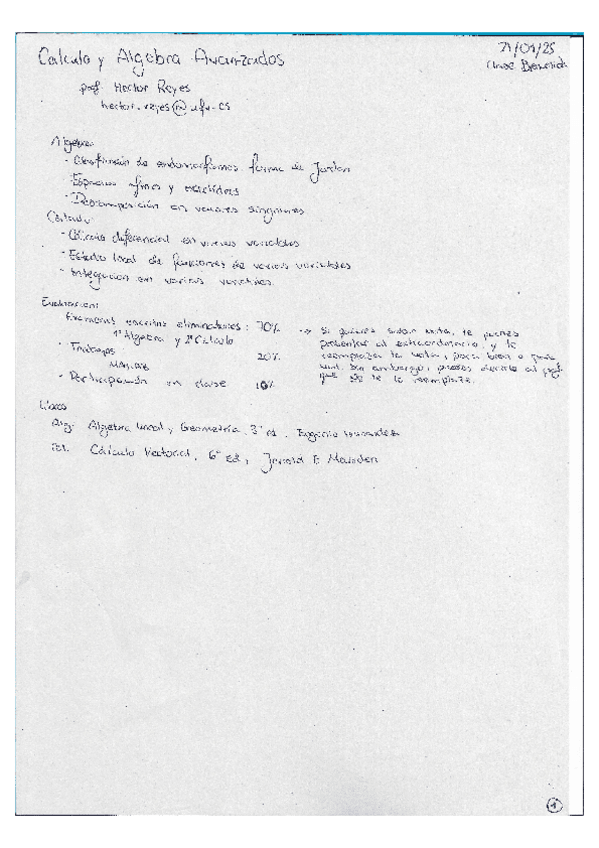 Calculo y Algebra Avanzados
21/01/25
Clase
prof Hector Reyes
hector.reyes@ufv.es
Algebra:
· Clasificación de endomorfismos forma de Jordan
· Espacios afines y euclídeos
· Descomposición en valores singulares
Cálculo:
· Cálculo diferencial en varias variables
· Estudio local de funciones de varias variables
· Integración en varias variables
Evaluacion:
Examenes escritos eliminatorios: 70%
1º Algebra y 2º Calculo
· Trabajos 20%
MATLAB
· Participación en clase 10%
-> Si quieres subir nota, te puedes
presentar al extraordinario y te
reemplaza la nota, para bien o para
mal. Sin embargo, puedes decirle al prof
que no te la reemplaze.
Libros
Alg. Algebra lineal y Geometría. 3ª ed. Eugenio Hernandez
Cálculo Vectorial. 6ª Ed, E Marsden
1